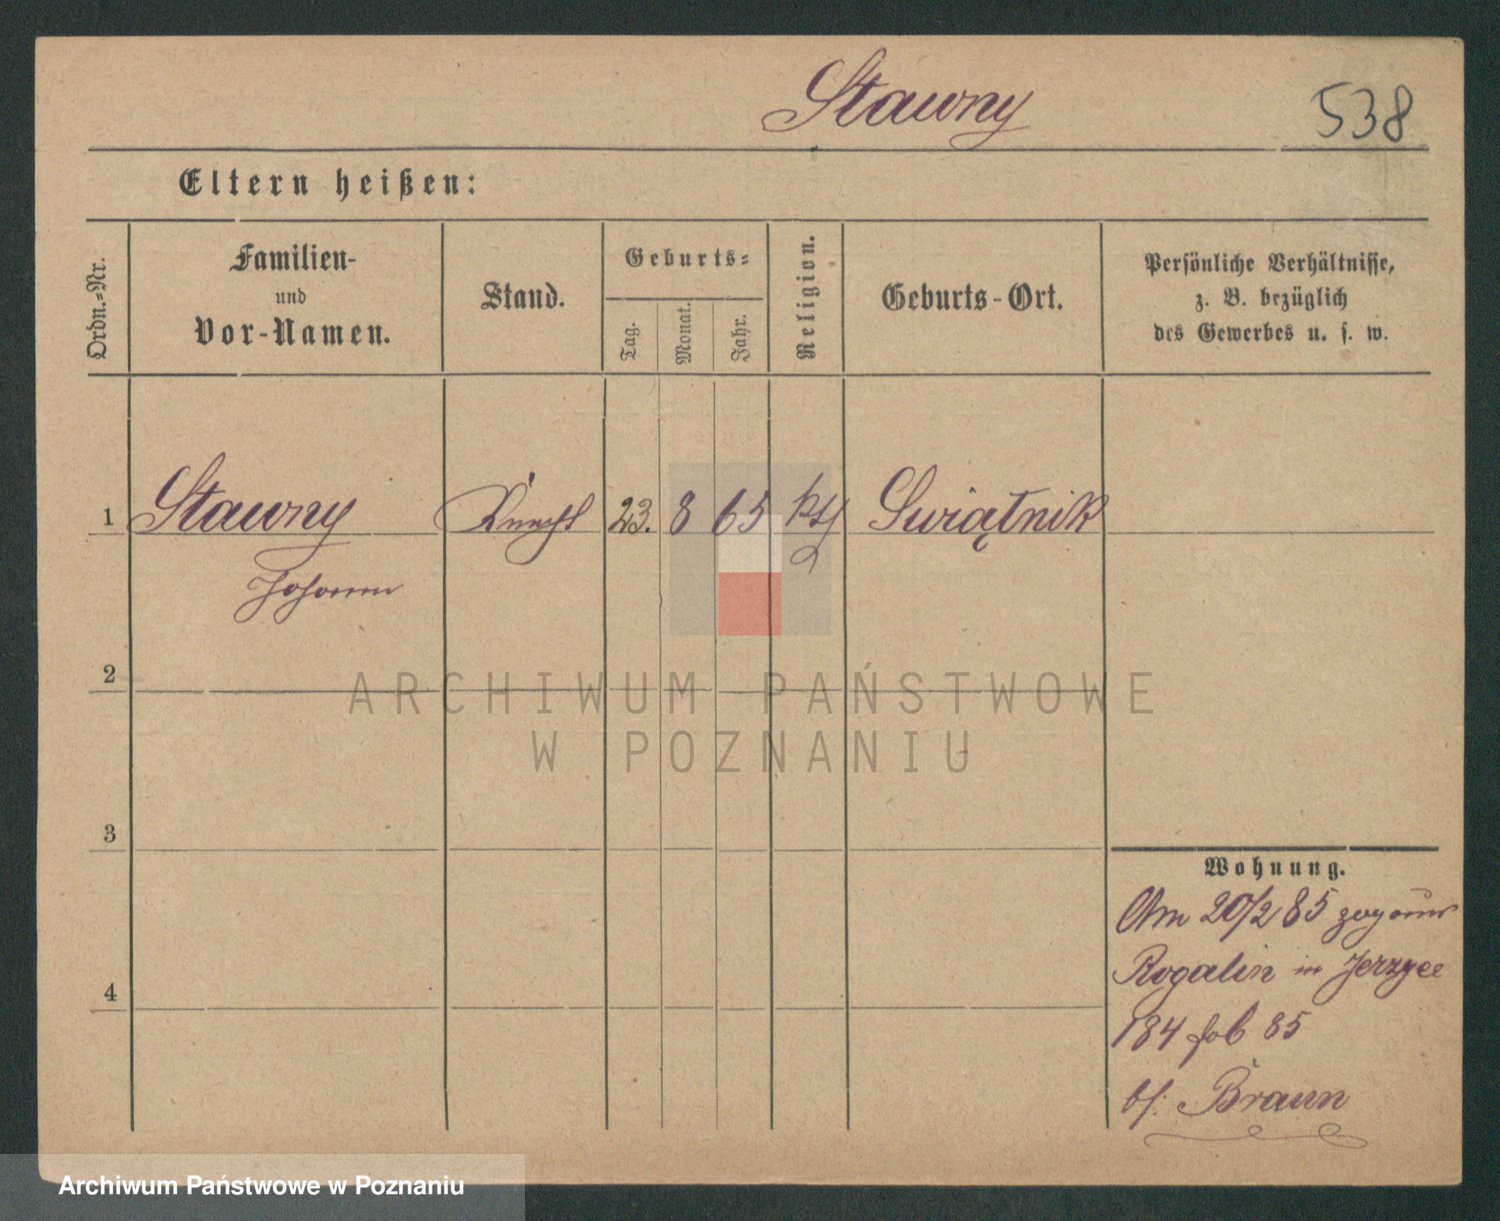 Stawny
538
Eltern heißen:
Ordn.=Nr.
Familien-
und
Vor-Namen.
Stand.
Geburts=
Tag.
Monat.
Jahr.
Religion.
Geburts-Ort.
Persönliche Verhältnisse,
z. B. bezüglich
des Gewerbes u. s. w.
1 Stawny Knecht 23. 8 65 Swiątnik
Johann
2
ARCHIWUM PAŃSTWOWE
W POZNANIU
3
4
Wohnung.
Am 20/2 85
Rogalin in
184 85
Braun
Archiwum Państwowe w Poznaniu